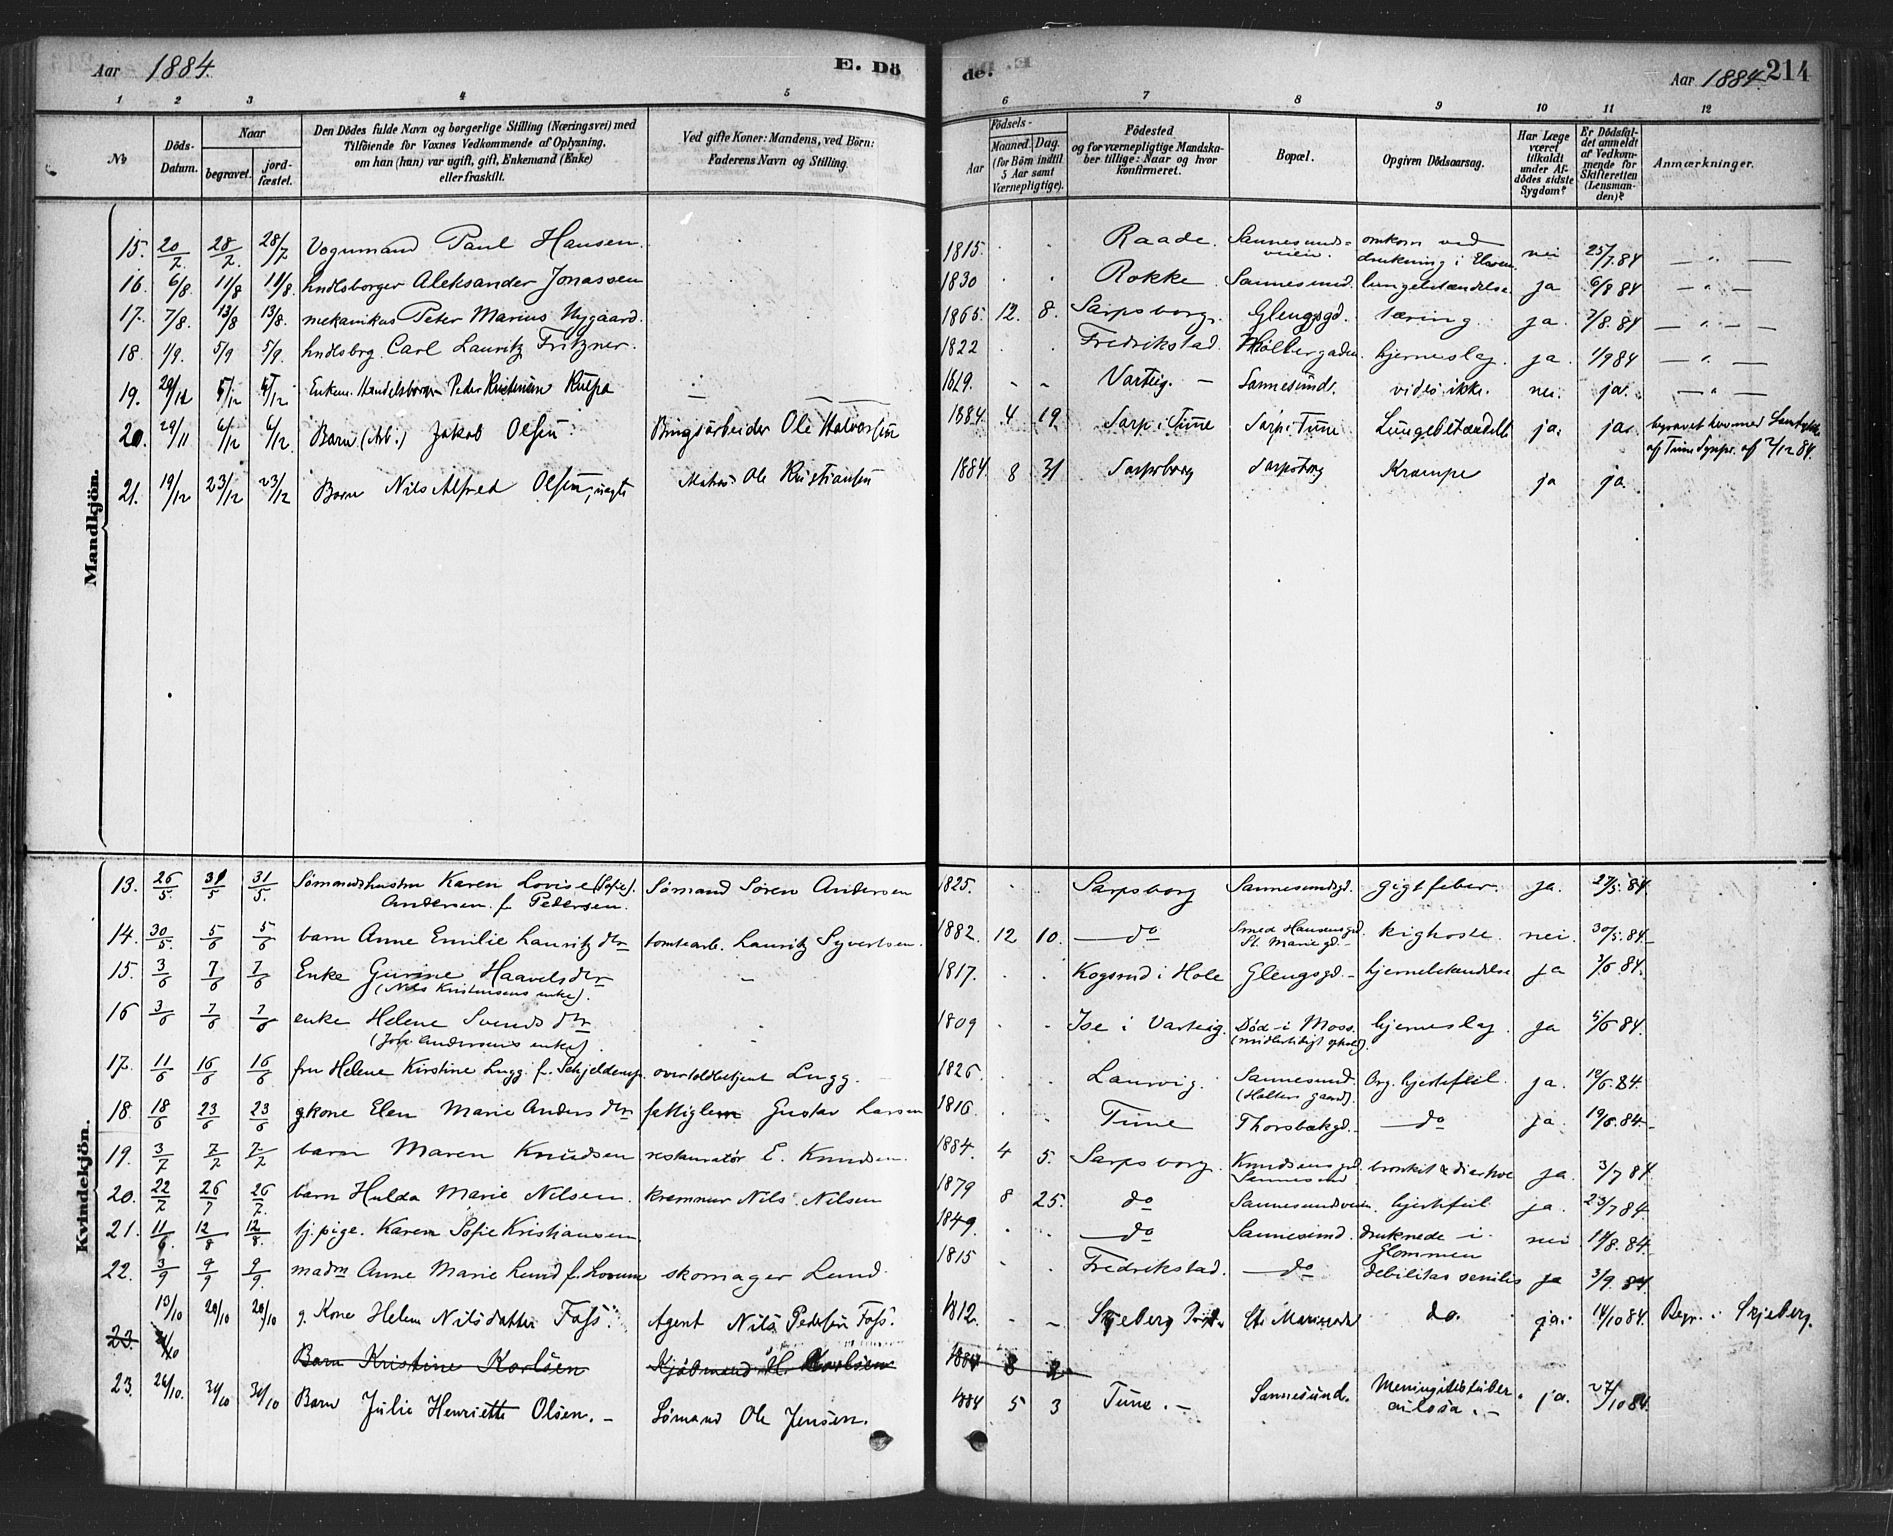 Aar 1884. E. Dö
de. Aar 1884. 214
1 2 3 4 5 6 7 8 9 10 11 12
No
Döds-
Datum.
Naar
begravet.
jord-
fæstet.
Den Dödes fulde Navn og borgerlige Stilling (Næringsvei) med
Tilföiende for Voxnes Vedkommende af Oplysning,
om han (hun) var ugift, gift, Enkemand (Enke)
eller fraskilt.
Ved gifte Koner: Mandens, ved Börn:
Faderens Navn og Stilling.
Födsels-
Aar
Maaned. Dag.
(for Börn indtil
5 Aar samt
Værnepligtige).
Födested
og for værnepligtige Mandska-
ber tillige: Naar og hvor
konfirmeret.
Bopæl.
Opgiven Dödsaarsag.
Har Læge
været
tilkaldt
under Af-
dödes sidste
Sygdom?
Er Dödsfal-
det anmeldt
af Vedkom-
mende for
Skifteretten
(Lensman-
den)?
Anmærkninger.
Mandkjön.
15. 20/7 28/7 28/7 Vognmand Paul Hansen. 1815. Raade. Sannesunds=veien. omkom ved drukning i Elven. nei 25/7.84 — " —
16. 6/8. 11/8 11/8. hndlsborger Aleksander Jonassen 1830 Rokke Sannesund. lungebetændelse. ja 6/8 84 — " —
17. 7/8. 13/8 13/8. mekanikus Peter Marius Nygaard. 1865. 12. 8. Sarpsborg. Glengsgd. tæring. ja. 7/8. 84 — " —
18. 1/9. 5/9 5/9. hndlsbrg. Carl Lauritz Fritzner. 1822 Fredrikstad. hjerneslag. ja. 1/9 84 — " —
19. Enkem. Handelsborger Peder 1819. — Varteig. — Sannesund. vides ikke. nei. ja. — " —
20. 29/11 6/12 6/12. Barn (Arb:) Jakob Olsen. Brugsarbeider Ole Halvorsen 1884. 4 19. Sarp i Tune Sarp i Tune Lungebetændelse ja. ja. begravet her med Samtykke
af Tune Sgnpr. af 2/12 84.
21. 19/12 23/12 23/12 Barn Nils Alfred Olsen, uægte Matros Ole Kristiansen 1884. 8 31 Sarpsborg Sarpsborg Krampe ja ja.
Kvindekjön.
13. 26/5. 31/5 31/5. Sømandshustru Karen Lovise (Sofie). Andersen f. Pedersen. Sømand Søren Andersen 1825. Sarpsborg Sannesundsgd. gigtfeber. ja. 27/5. 84.
14. 30/5. 5/6 5/6 barn Anne Emilie Lauritzdtr tomtearb. Lauritz Syvertsen. 1882. 12 10. — do Smed Hansensgd. St. Mariegd. — kighoste. nei. 30/5. 84 —
15. 3/6 7/6 7/6 Enke Gurine Haavelsdtr (Nils Kristensens enke). " 1817. i Hole Glengsgd. — hjernebetændelse ja 3/6 84.
16 3/6 7/6 7/6 enke Helene Svendsdtr (Joh. Andersens enke). 1809 Ise i Varteig. Død i Moss. (midlertidigt ophold). hjerneslag. ja 5/6 84.
17. 11/6 16/6 16/6 fru Helene Kirstine Lugg f. Schjelderup. overtoldbetjent Lugg. 1826. Laurvig. Sannesund. (Halters gaard). Org. hjertefeil. ja. 84.
18. 18/6 23/6 23/6 gkone Elen Marie Andersdtr fattiglem Gustav Larsen 1816. Tune Thorsbækgd. — do ja. 19/6. 84. —
19. 3/7 7/7 7/7 barn Maren Knudsen restauratør E. Knudsen. 1884. 4 5. Sarpsborg. Knudsensgd. Sannesund bronkit & diarhoe ja. 3/7 84
20. 22/7 26/7 26/7. barn Hulda Marie Nilsen. kræmmer Nils Nilsen 1879 8 25. do Sannesundveien. hjertefeil ja. 23/7 84.
21. 12/8 12/8. tj. pige. Karen Sofie Kristiansen 1849. — do Sannesund. druknede i Glommen nei 84.
22. 3/9 9/9 9/9. madm Anne Marie Lund f. skomager Lund. 1815 Fredrikstad. — do debilitas senilis ja 3/9. 84
g. Kone Helene Nilsdatter Foss. Agent Nils Pedersen Foss. 1812. — Skjeberg do. ja. 14/10 84. Begr. i Skjeberg.
23. Barn Kristine Karlsen Kjøbmand H. Karlsen 8 2
23. 26/10. Barn Julie Henriette Olsen. — Sømand Ole Jensen. 1884 5 3 Tune. — Sannesund. Meningitis tuberculosa. — ja. 27/10 84.